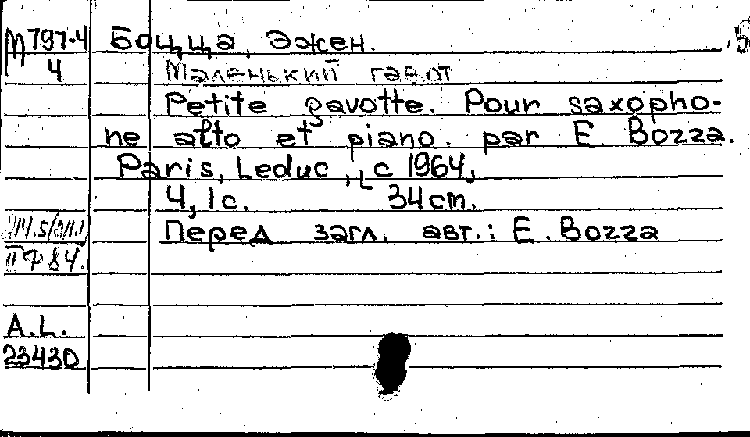 М 797-4 Боцца, Эжен.
4 Маленький гавот
Petite gavotte. Pour saxopho-
ne alto et piano. par E. Bozza.
Paris, Leduc, c 1964,
4, 1 с. 34 cm.
Перед загл. авт.: E. Bozza
84.
A.L.
23430